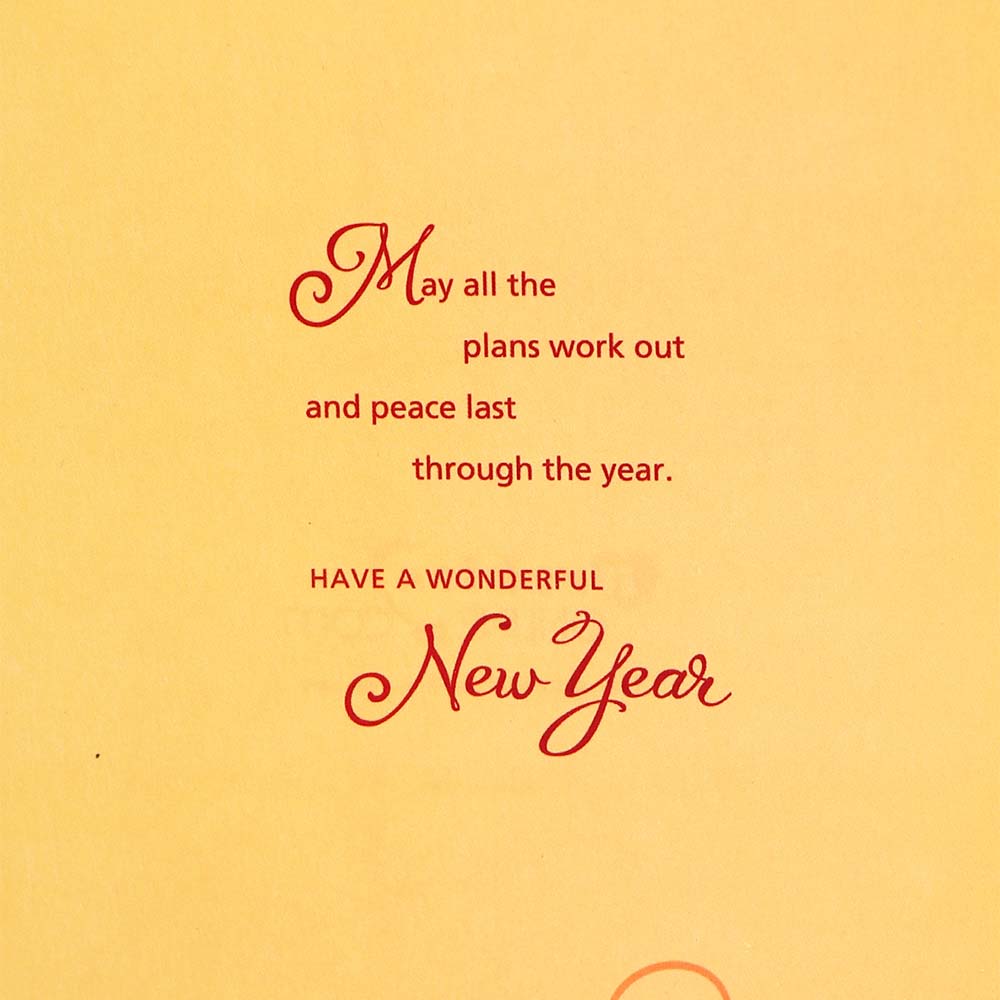 May all the
plans work out
and peace last
through the year.
HAVE A WONDERFUL
New Year